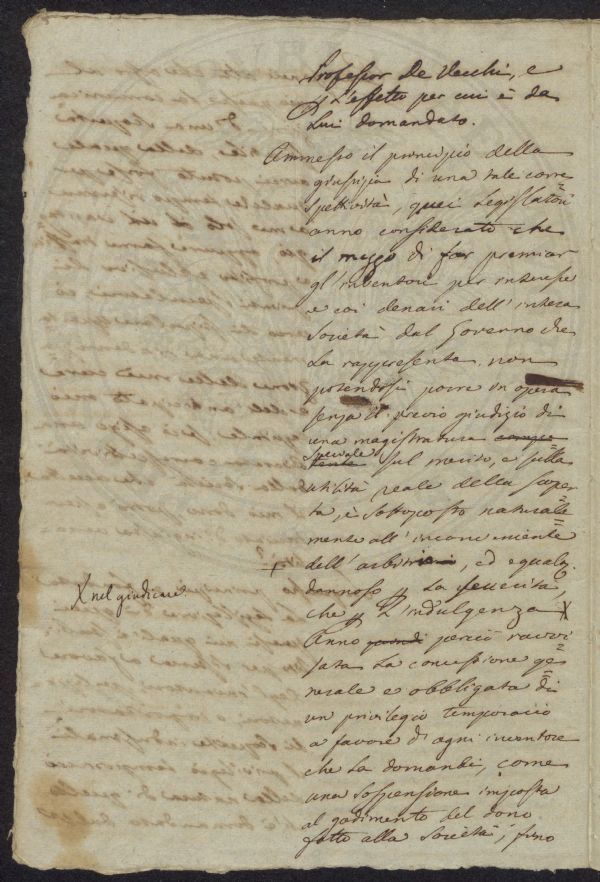 Professor De Vecchi, e
p l'effetto per cui è da
Lui domandato.
Ammesso il principio della
giustizia di una tale corre
spettività, quei Legislatori
anno considerato che
il mezzo di far premiar
gl'inventori per interesse
e coi denari dell'intera
Società dal Governo che
La rappresenta, non
potendosi porre in opera
senza il previo giudizio di
una magistratura compe
tente speciale sul merito, e sulla
utilità reale della scoper
ta, è sottoposto naturale
mente all'inconveniente
dell'arbitrio, ed egualm.
dannoso p La severità,
che p L'indulgenza X
X nel giudicare.
Anno perciò ravvi
sata La concessione ge
nerale e obbligata di
un privilegio temporario
a favore di ogni inventore
che La domandi, come
una sospensione imposta
al godimento del dono
fatto alla Società, fino